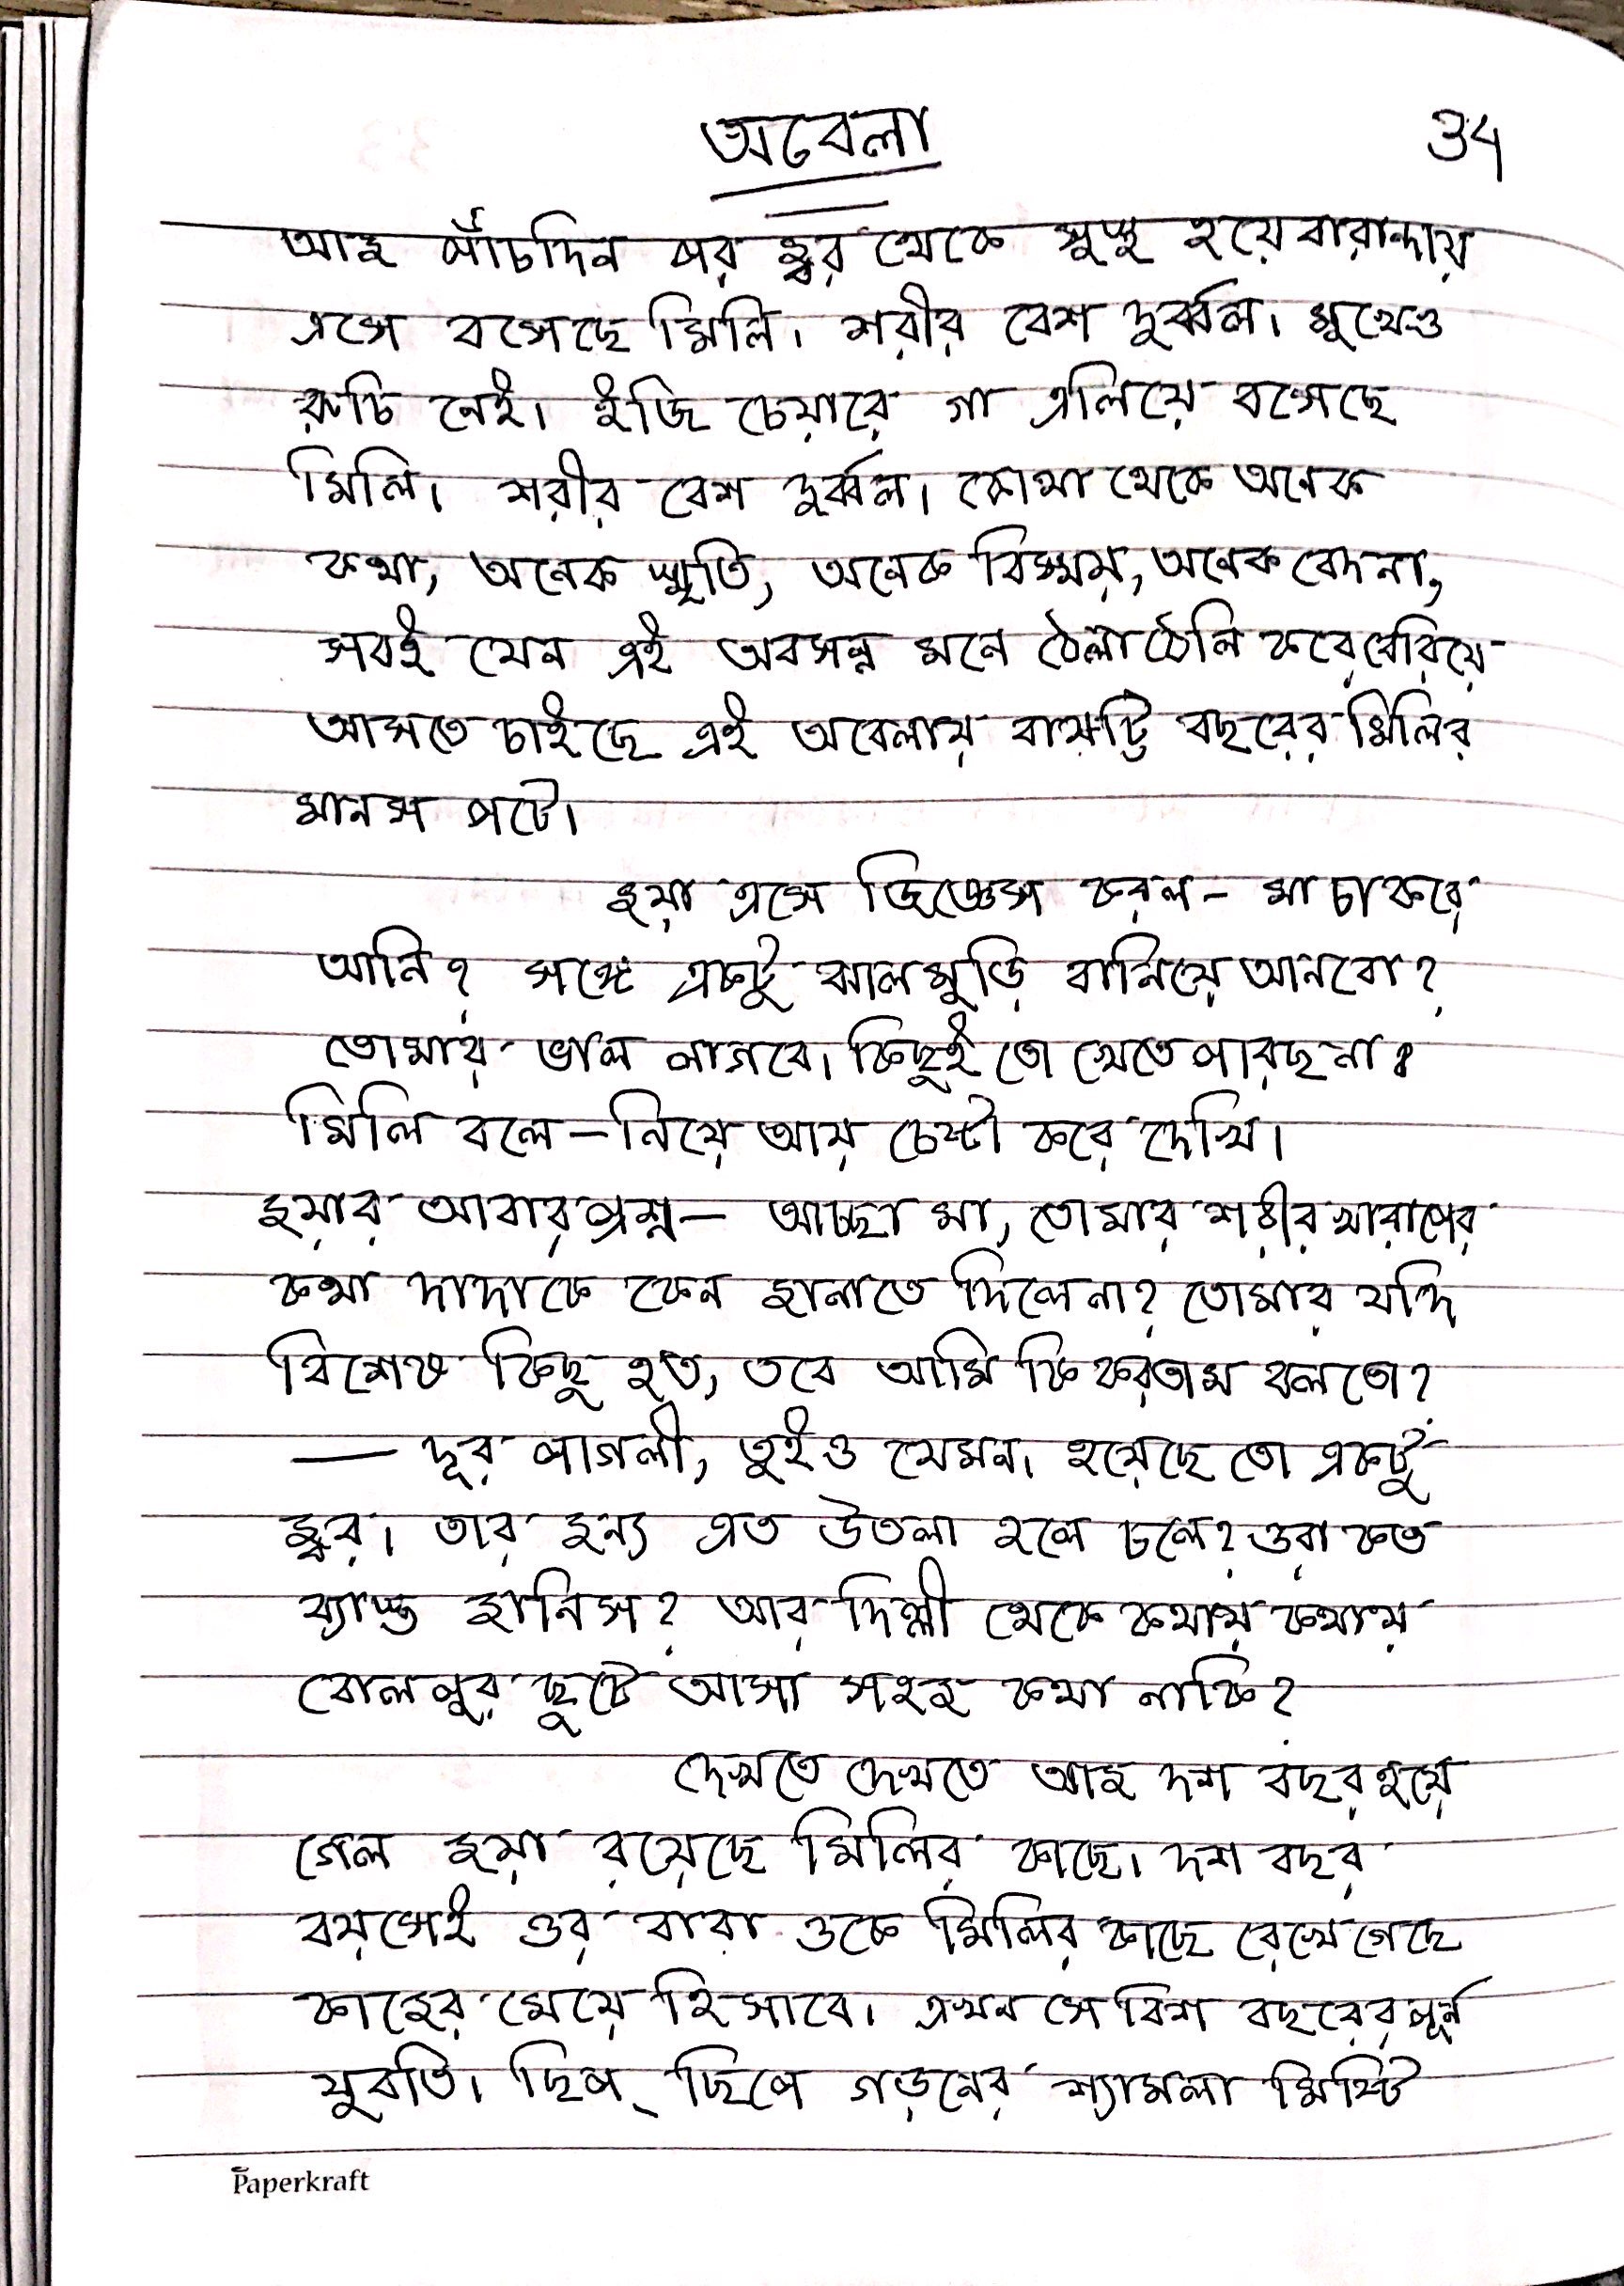 অবেলা
34
আজ পাঁচদিন পর জ্বর থেকে সুস্থ হয়ে বারান্দায়
এসে বসেছে মিলি। শরীর বেশ দুর্ব্বল। মুখেও
রুচি নেই। ইজি চেয়ারে গা এলিয়ে বসেছে
মিলি। শরীর বেশ দুর্ব্বল। কোথা থেকে অনেক
কথা, অনেক স্মৃতি, অনেক বিস্ময়, অনেক বেদনা,
সবই যেন এই অবসন্ন মনে ঠেলাঠেলি করে বেরিয়ে
আসতে চাইছে এই অবেলায় বাষট্টি বছরের মিলির
মানস পটে।
জয়া এসে জিজ্ঞেস করল – মা চা করে
আনি? সঙ্গে একটু ঝালমুড়ি বানিয়ে আনবো?
তোমার ভাল লাগবে। কিছুই তো খেতে পারছ না।
মিলি বলে – নিয়ে আয় চেষ্টা করে দেখি।
জয়ার আবার প্রশ্ন – আচ্ছা মা, তোমার শরীর খারাপের
কথা দাদাকে কেন জানাতে দিলে না? তোমার যদি
বিশেষ কিছু হত, তবে আমি কি করতাম বলতো?
— দূর পাগলী, তুইও যেমন। হয়েছে তো একটু
জ্বর। তার জন্য এত উতলা হলে চলে? ওরা কত
ব্যাস্ত জানিস? আর দিল্লী থেকে কথায় কথায়
বোলপুর ছুটে আসা সহজ কথা নাকি?
দেখতে দেখতে আজ দশ বছর হয়ে
গেল জয়া রয়েছে মিলির কাছে। দশ বছর
বয়সেই ওর বাবা ওকে মিলির কাছে রেখে গেছে
কাজের মেয়ে হিসাবে। এখন সে বিশ বছরের পূর্ন
যুবতি। ছিপ্ ছিপে গড়নের শ্যামলা মিষ্টি
Paperkraft